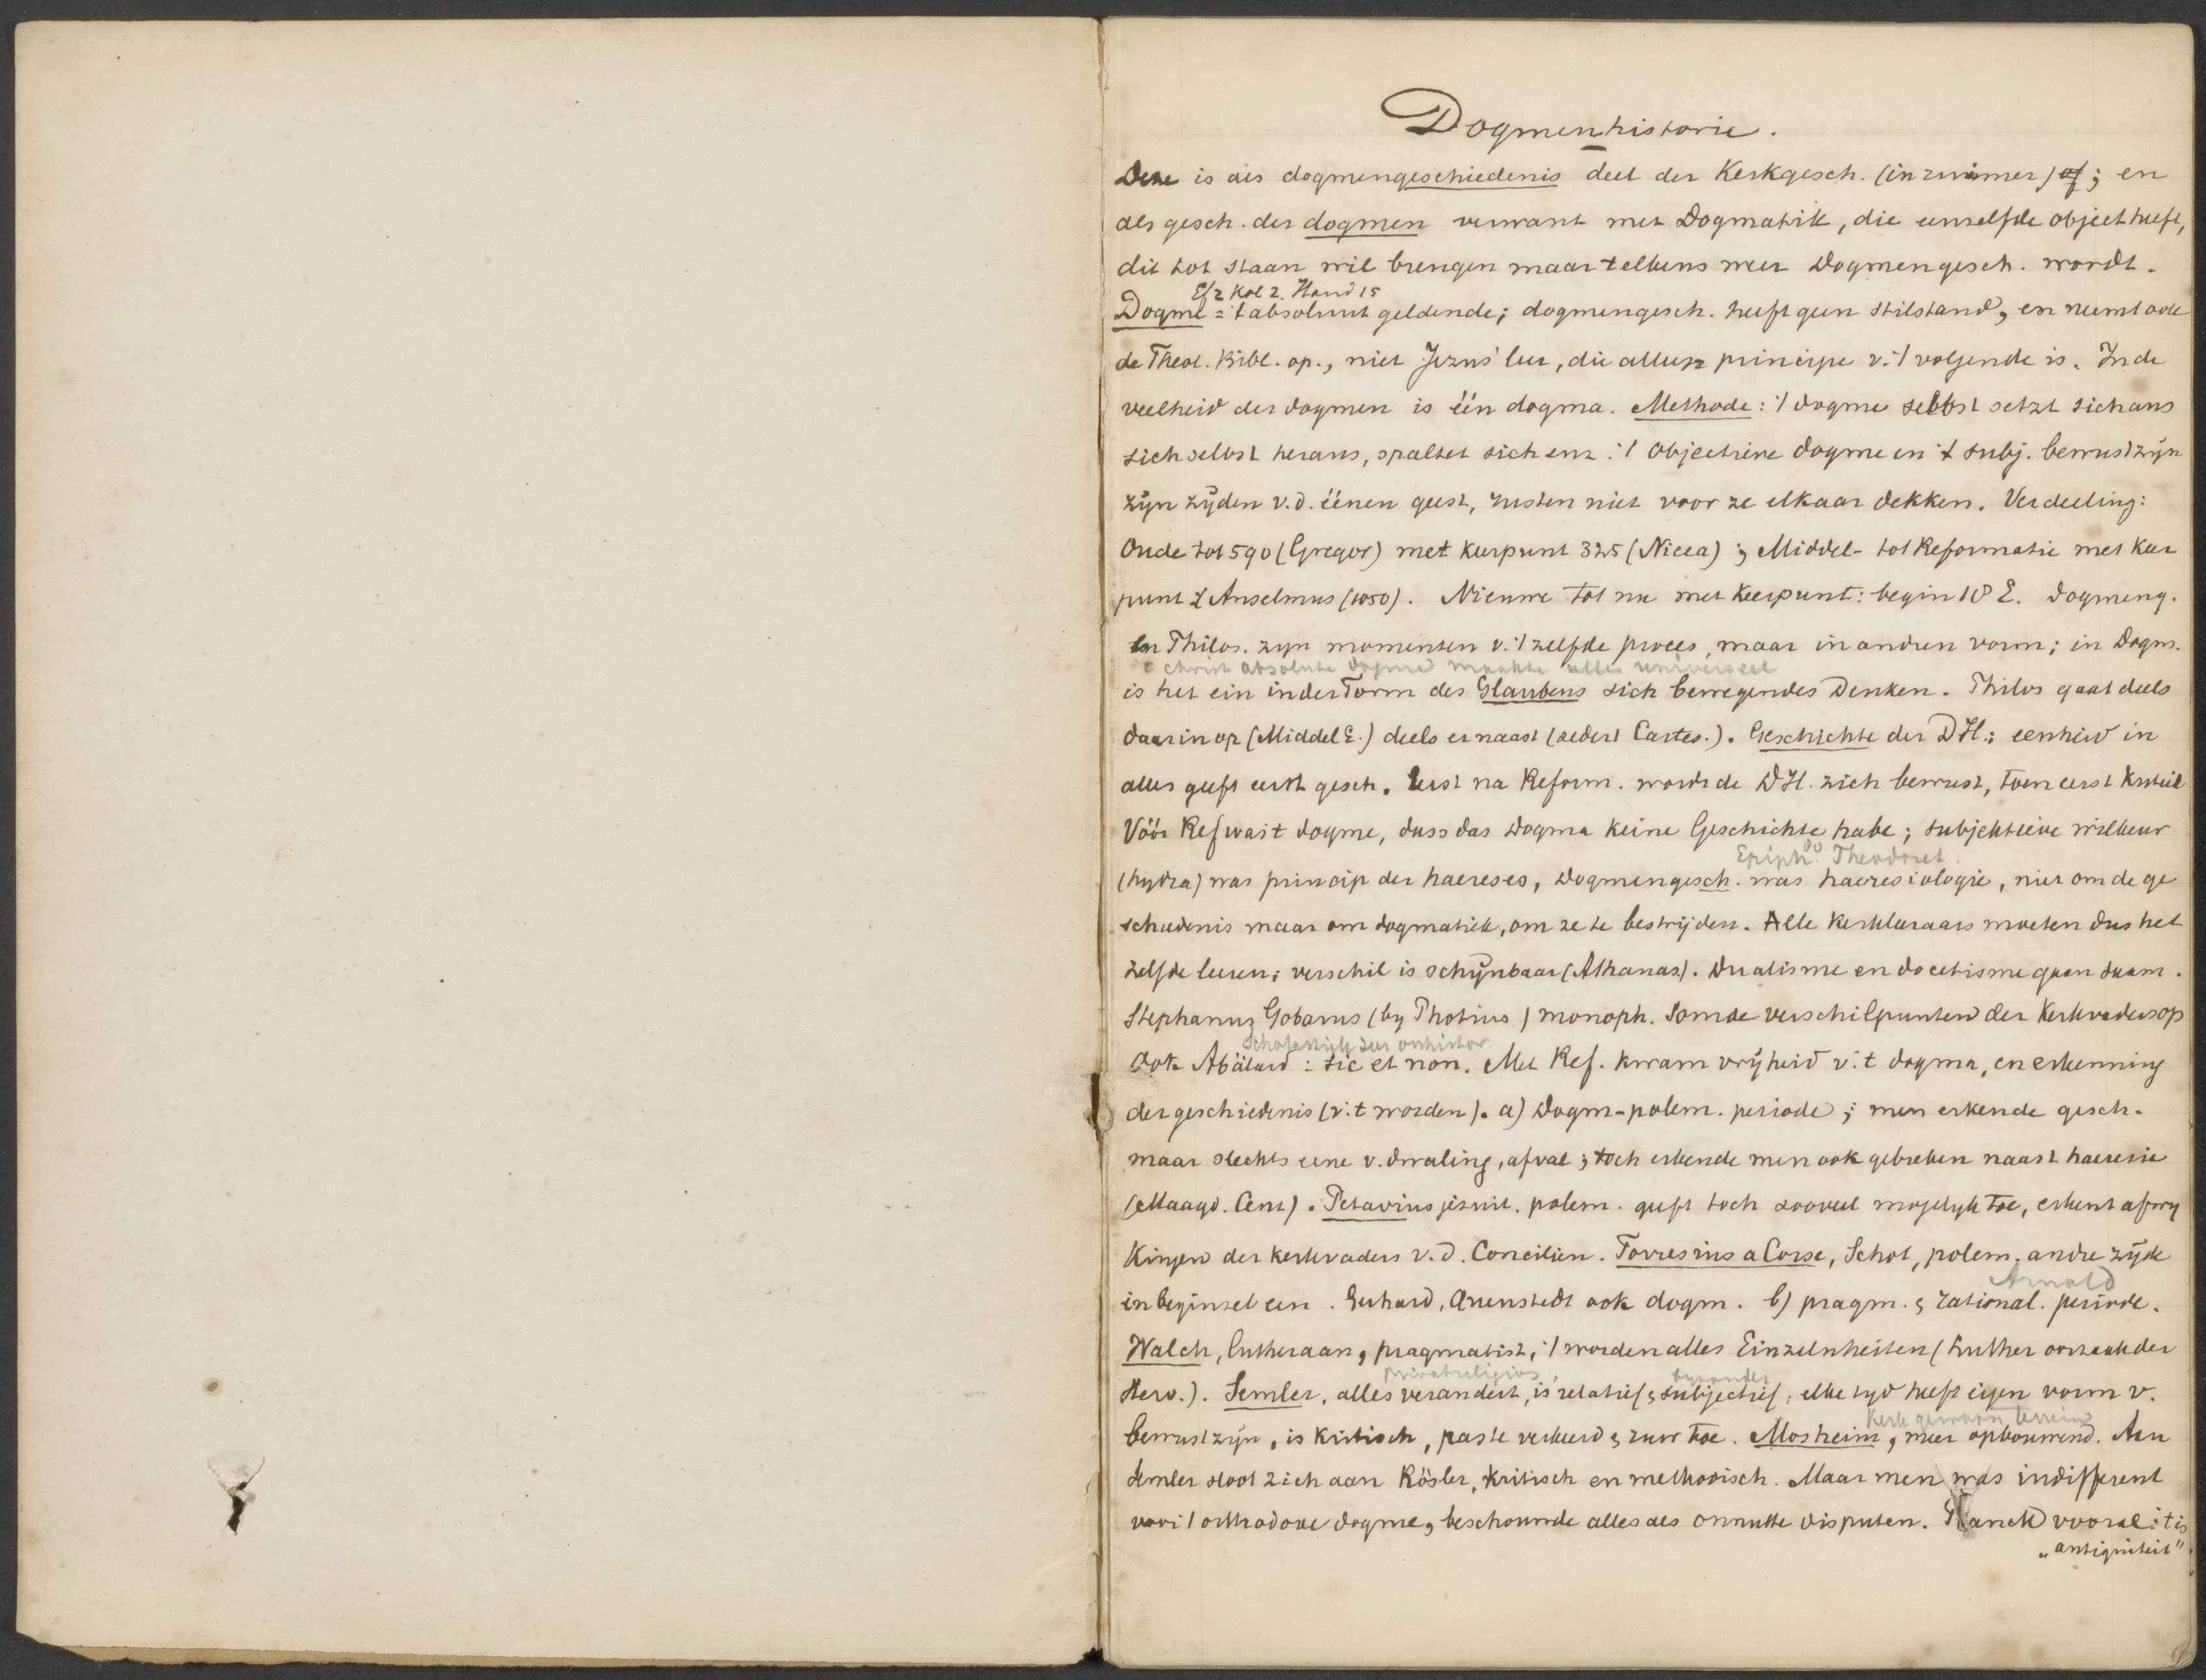 Dogmenhistorie.
Deze is als dogmengeschiedenis deel der Kerkgesch. (in zijn immer) of; en
als gesch. der dogmen verwant met Dogmatik, die eenzelfde object heeft,
dit tot staan wil brengen maar telkens weer Dogmengesch. wordt.
Ef 2 Kol 2. Hand 15
Dogme = 't absoluut geldende; dogmengesch. heeft geen stilstand, en neemt ook
de Theol. Bibl. op., niet Jezus' leer, die alleen principe v. 't volgende is. In de
veelheid der dogmen is één dogma. Methode: 't dogme selbst setzt sich aus
sich selbst heraus, spaltet sich enz. 't Objectieve dogme en 't subj. bewustzijn
zijn zijden v.d. éénen geest, rusten niet voor ze elkaar dekken. Verdeeling:
Oude tot 590 (Gregor) met keerpunt 325 (Nicea); Middel- tot Reformatie met keer
punt Anselmus (1050). Nieuwe tot nu met keerpunt: begin 18 E. Dogmeng.
en Philos. zijn momenten v. 't zelfde proces, maar in andren vorm; in Dogm.
christ absolute dogma maakte alles universeel
is het ein in der Form des Glaubens sich bewegendes Denken. Philos gaat deels
daarin op (Middel E.) deels ernaast (sedert Cartes.). Geschichte der DH.: eenheid in
alles geeft eerst gesch. Eerst na Reform. wordt de DH. zich bewust, toen eerst kritiek
Vóór Ref was 't dogme, dass das Dogma keine Geschichte habe; subjektieve willkeur
Epiph. Theodoret.
(hydra) was princip der haereses, Dogmengesch. was haeresiologie, niet om de ge
schiedenis maar om dogmatiek, om ze te bestrijden. Alle kerkleeraars moeten dus het
zelfde leeren; verschil is schijnbaar (Athanas.). Dualisme en docetisme gaan saam.
Stephanus Gobarus (by Photius) monoph. somde verschilpunten der kerkvaders op
Scholastiek zeer onhistor
Ook Abälard: sic et non. Met Ref. kwam vrijheid v. 't dogma, en erkenning
der geschiedenis (v. 't worden). a) Dogm-polem. periode; men erkende gesch.
maar slechts eene v. dwaling, afval; toch erkende men ook gebreken naast haeresie
(Maagd. Cent). Petavius jezuit. polem. geeft toch zooveel mogelyk toe, erkent afwij
kingen der kerkvaders v.d. Conciliën. Forresius a Corse, Schot, polem. andre zijde
Arnold
in beginsel een. Gerhard, Quenstedt ook dogm. b) pragm. & rational. periode.
Walch, Lutheraan, pragmatist, 't worden alles Einzelnheiten (Luther oorzaak der
privatreligios, byzonder
Herv.). Semler, alles verandert, is relatief & subjectief, elke tyd heeft eigen vorm v.
Kerk gewoon terrein
bewustzijn, is kritisch, paste verkeerd & zuur toe. Mosheim, meer opbouwend. Aan
Semler sloot zich aan Rösler, kritisch en methodisch. Maar men was indifferent
voor 't orthodoxe dogme, beschouwde alles als onnutte disputen. Planck vooral: 't is
„antiquiteit".